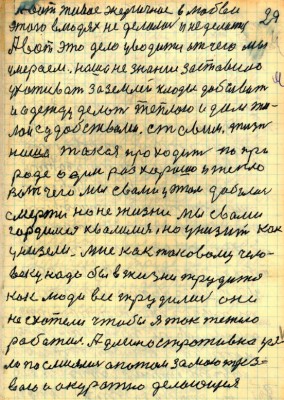 29
А вот живое, энергичное в любви
этого в людях не делали и не делают
А вот это дело уводит от чего мы
умераем. наше не знание заставело
ухаживат за землей плоды добыват
и одежду делат теплою и дом жи
лой с удобствами, ст вами, жизн
наша такая проходит по при
роде один раз хорошо и тепло
вот чего мы с вами у этом добилис
смерти но не жизни мы с вами
гордимся хвалимся, но унизит как
унизели. мне как таковому чело-
веку надо бы в жизни трудится
как люди все трудилис они
не схотели чтобы я так тепло
работал. Администротивно
по
вого и акуратно делающия